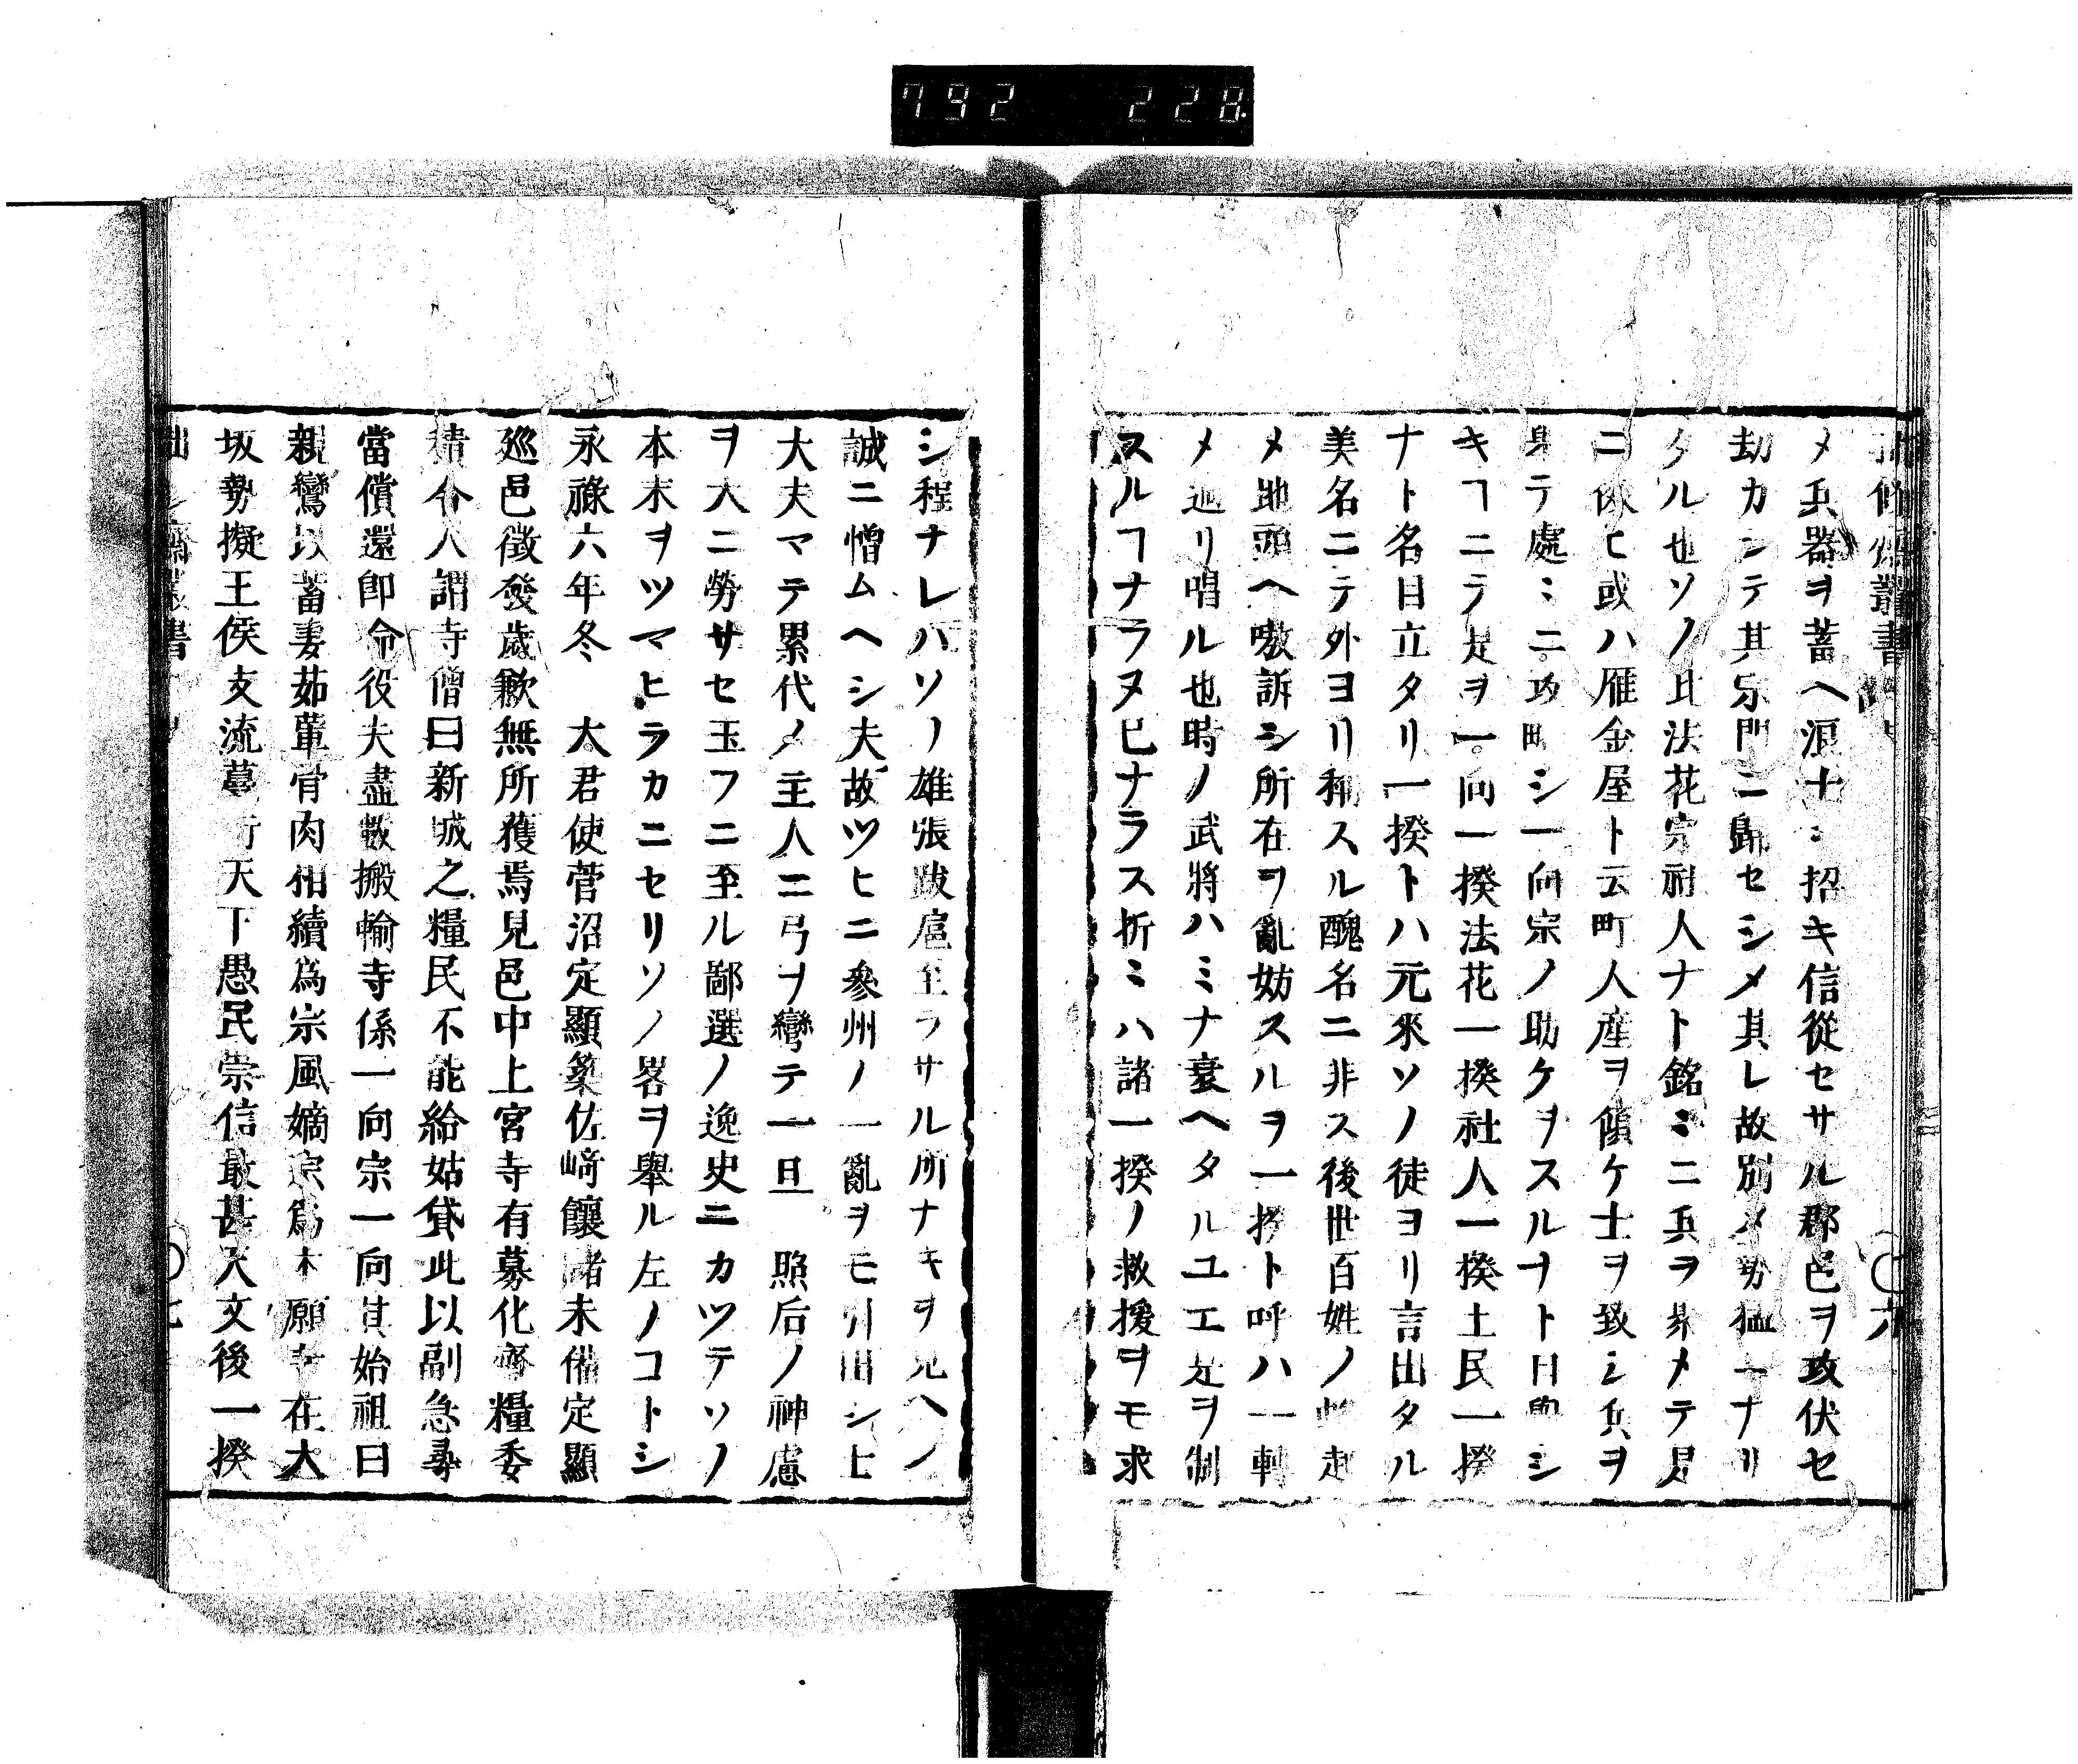 792 228
メ兵器ヲ蓄ヘ浪士ミ招キ信從セサル郡邑ヲ攻伏セ
劫カシテ其宗門ニ歸セシメ其レ故別メ勇猛ーナリ
タル也ソノ比法花宗神人ナト銘ミニ兵ヲ聚メテ是
ニ倣ヒ或ハ雁金屋ト云町人産ヲ傾ケ士ヲ致シ兵ヲ
聚テ處ミニ攻鬪シ一向宗ノ助ケヲスルナト目覺シ
キヿニテ是ヲ一向一揆法花一揆社人一揆土民一揆
ナト名目立タリ一揆トハ元來ソノ徒ヨリ言出タル
美名ニテ外ヨリ稱スル醜名ニ非ス後世百姓ノ蜂起
メ地頭ヘ嗷訴シ所在ヲ亂妨スルヲ一揆ト呼ハ一轉
メ遊リ唱ル也時ノ武將ハミナ衰ヘタルユエ是ヲ制
スルヿナラヌ已ナラス折ミハ諸一揆ノ救援ヲモ求
六
シ程ナレハソノ雄張跋扈至ラサル所ナキヲ見ヘノ
誠ニ憎ムヘシ夫故ツヒニ參州ノ一亂ヲモ引出シヒ
大夫マテ累代ノ主人ニ弓ヲ彎テ一旦 照后ノ神慮
ヲ大ニ勞サセ玉フニ至ル鄙選ノ逸史ニカツテソノ
本末ヲツマヒラカニセリソノ畧ヲ擧ル左ノコトシ
永祿六年冬 大君使菅沼定顯築佐﨑饟諸未備定顯
巡邑徵發歲歉無所獲焉見邑中上宮寺有募化齋糧委
積令人謂寺僧曰新城之糧民不能給姑貸此以副急尋
當償還卽命役夫盡數搬輸寺係一向宗一向其始祖曰
親鸞以蓄妻茹葷骨肉相續爲宗風嫡宗爲本願寺在大
坂勢擬王侯支流蔓衍天下愚民崇信最甚天文後一揆